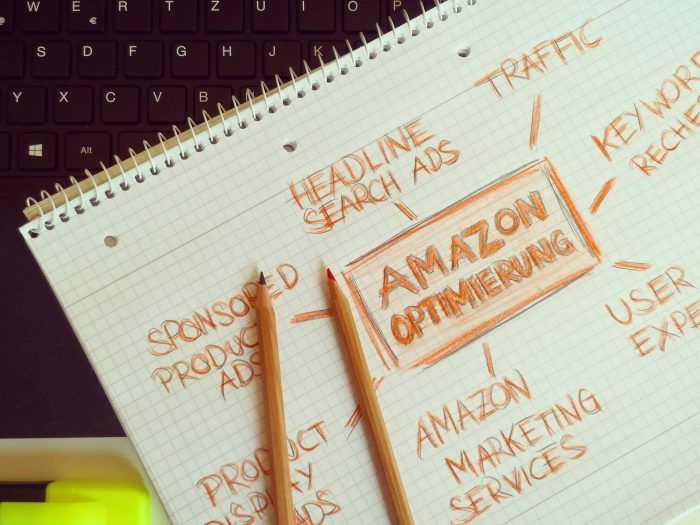 W E R T Z U I O P
S D F G H J K
Y X C V B
€
Alt
TRAFFIC
HEADLINE
SEARCH ADS
KEYWORD
RECHE
AMAZON
OPTIMIERUNG
SPONSORED
PRODUCT
ADS
USER
EXPE
AMAZON
MARKETING
SERVICES
PRODUCT
DISPLAY
ADS